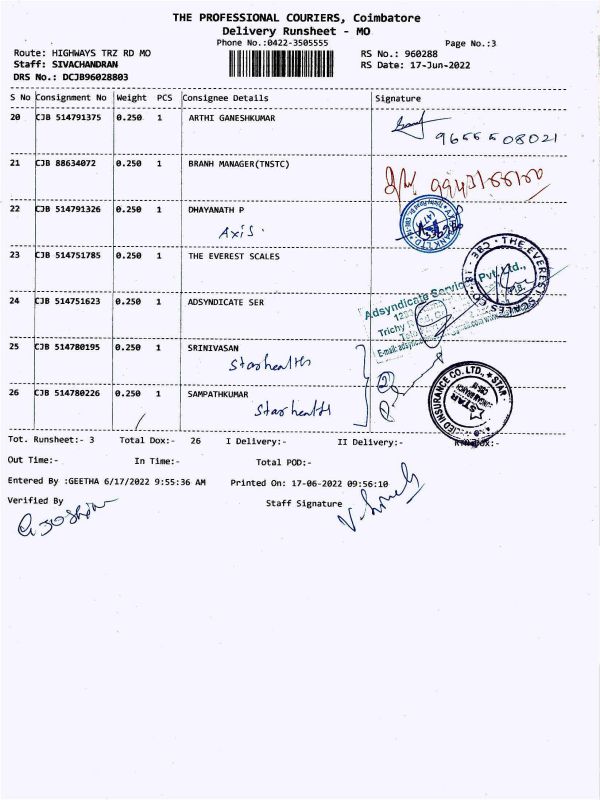 THE PROFESSIONAL COURIERS, Coimbatore
Delivery Runsheet - MO
Phone No.:0422-3505555
Page No.:3
Route: HIGHWAYS TRZ RD MO
RS No.: 960288
Staff: SIVACHANDRAN
RS Date: 17-Jun-2022
DRS No.: DCJB96028803
S No Consignment No Weight PCS Consignee Details Signature
20 CJB 514791375 0.250 1 ARTHI GANESHKUMAR
9655508021
21 CJB 88634072 0.250 1 BRANH MANAGER(TNSTC)
22 CJB 514791326 0.250 1 DHAYANATH P
AXIS.
23 CJB 514751785 0.250 1 THE EVEREST SCALES
THE EVEREST SCALES CO. CBE - 18
24 CJB 514751623 0.250 1 ADSYNDICATE SER
Adsyndicate Services Pvt. Ltd.,
Trichy
25 CJB 514780195 0.250 1 SRINIVASAN
Starhealth
26 CJB 514780226 0.250 1 SAMPATHKUMAR
Starhealth
INSURANCE CO. LTD. * STAR
STAR
Tot. Runsheet:- 3 Total Dox:- 26 I Delivery:- II Delivery:-
Out Time:- In Time:- Total POD:-
Entered By :GEETHA 6/17/2022 9:55:36 AM Printed On: 17-06-2022 09:56:10
Verified By Staff Signature